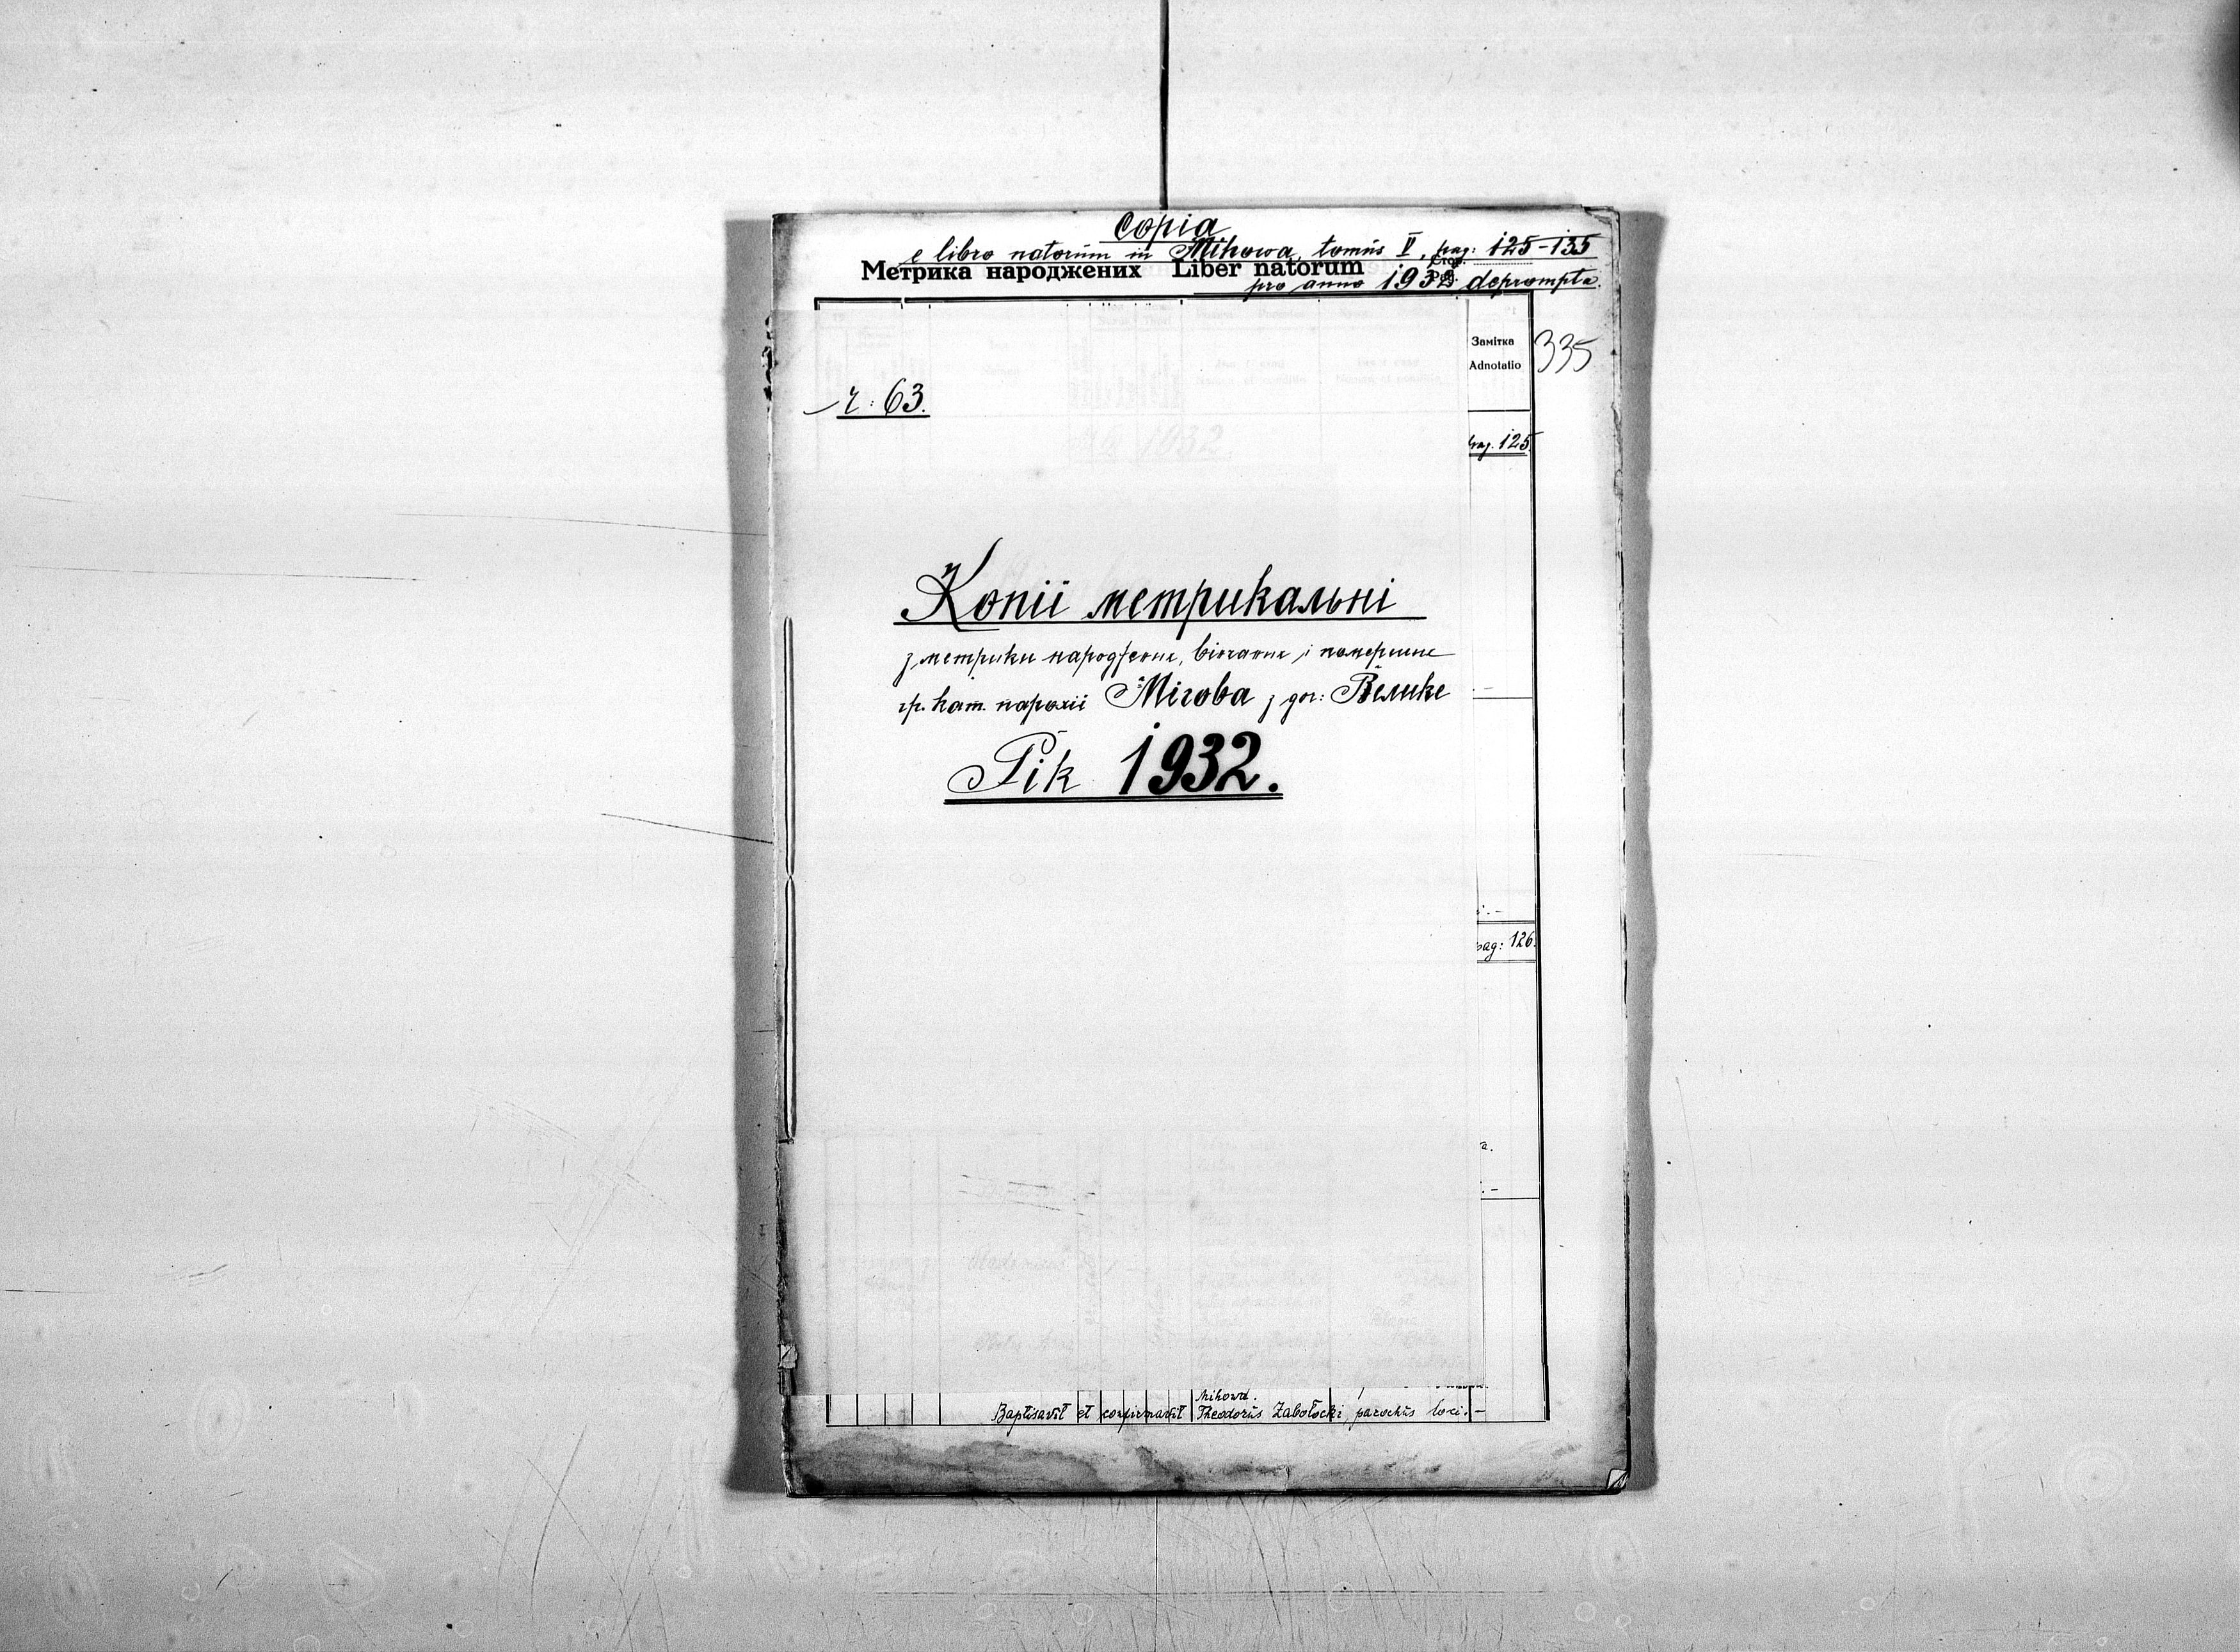 Copia
e libro natorum in Mihowa, tomus V, pag: 125-135
Метрика народжених Liber natorum Стор. Pag.
pro anno 1932 deprompta.
Замітка
Adnotatio
335
ч: 63.
pag. 125.
Копії метрикальні
з метрики народжених, вінчаних і померших
гр. кат. парохії Мігова з доч: Велике
Рік 1932.
pag: 126.
Mihowa.
Baptisavit et confirmavit Theodorus Zabołocki, parochus loci.-